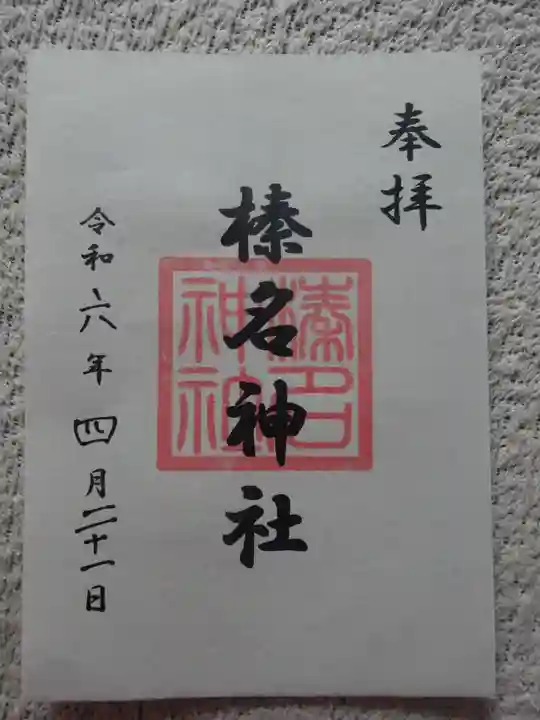 奉拝
榛名神社
榛名
神社
令和六年四月二十一日